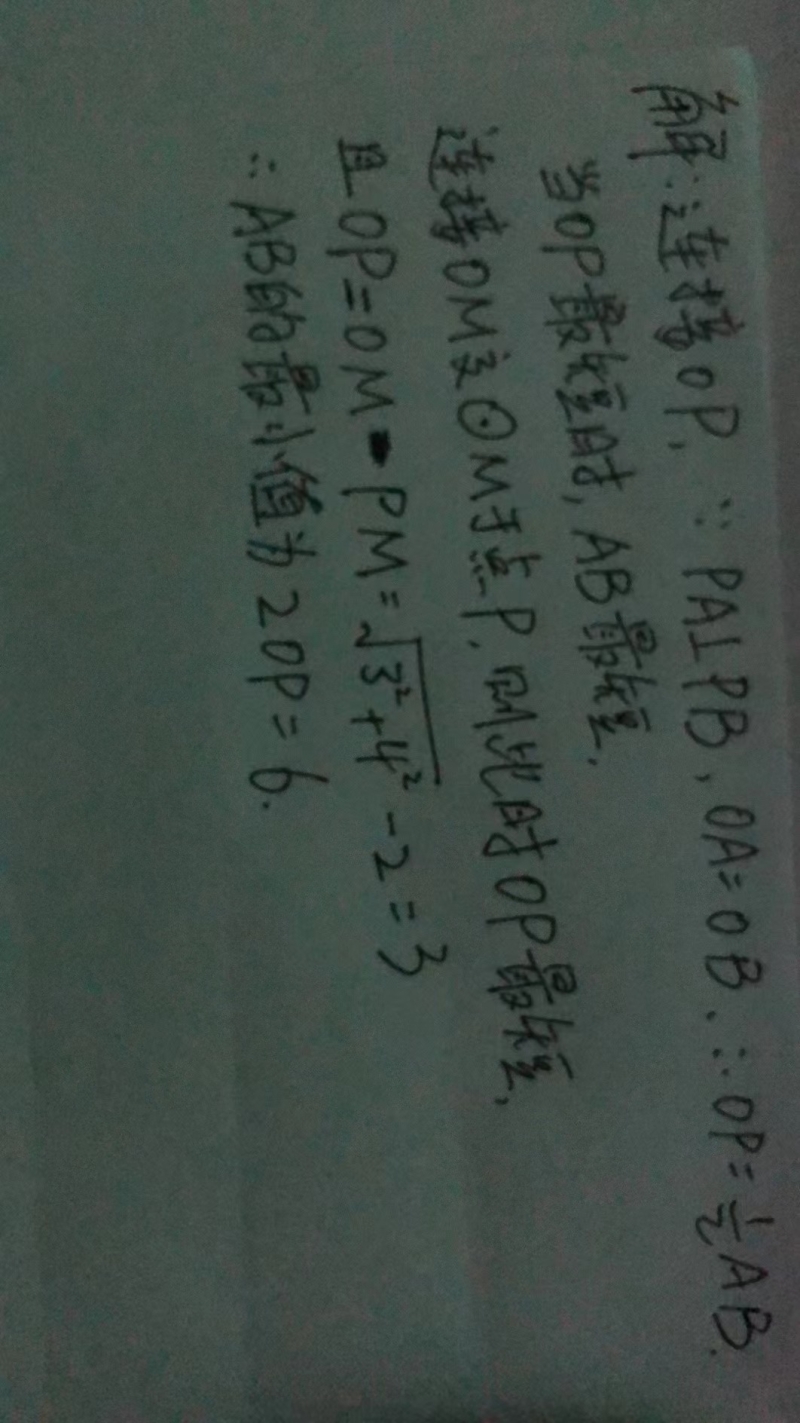 解:连接OP, ∵PA⊥PB, OA=OB, ∴OP=½AB.
当OP最短时, AB最短.
连接OM交⊙M于点P, 则此时OP最短,
且OP=OM-PM=√3²+4²-2=3
∴AB的最小值为2OP=6.